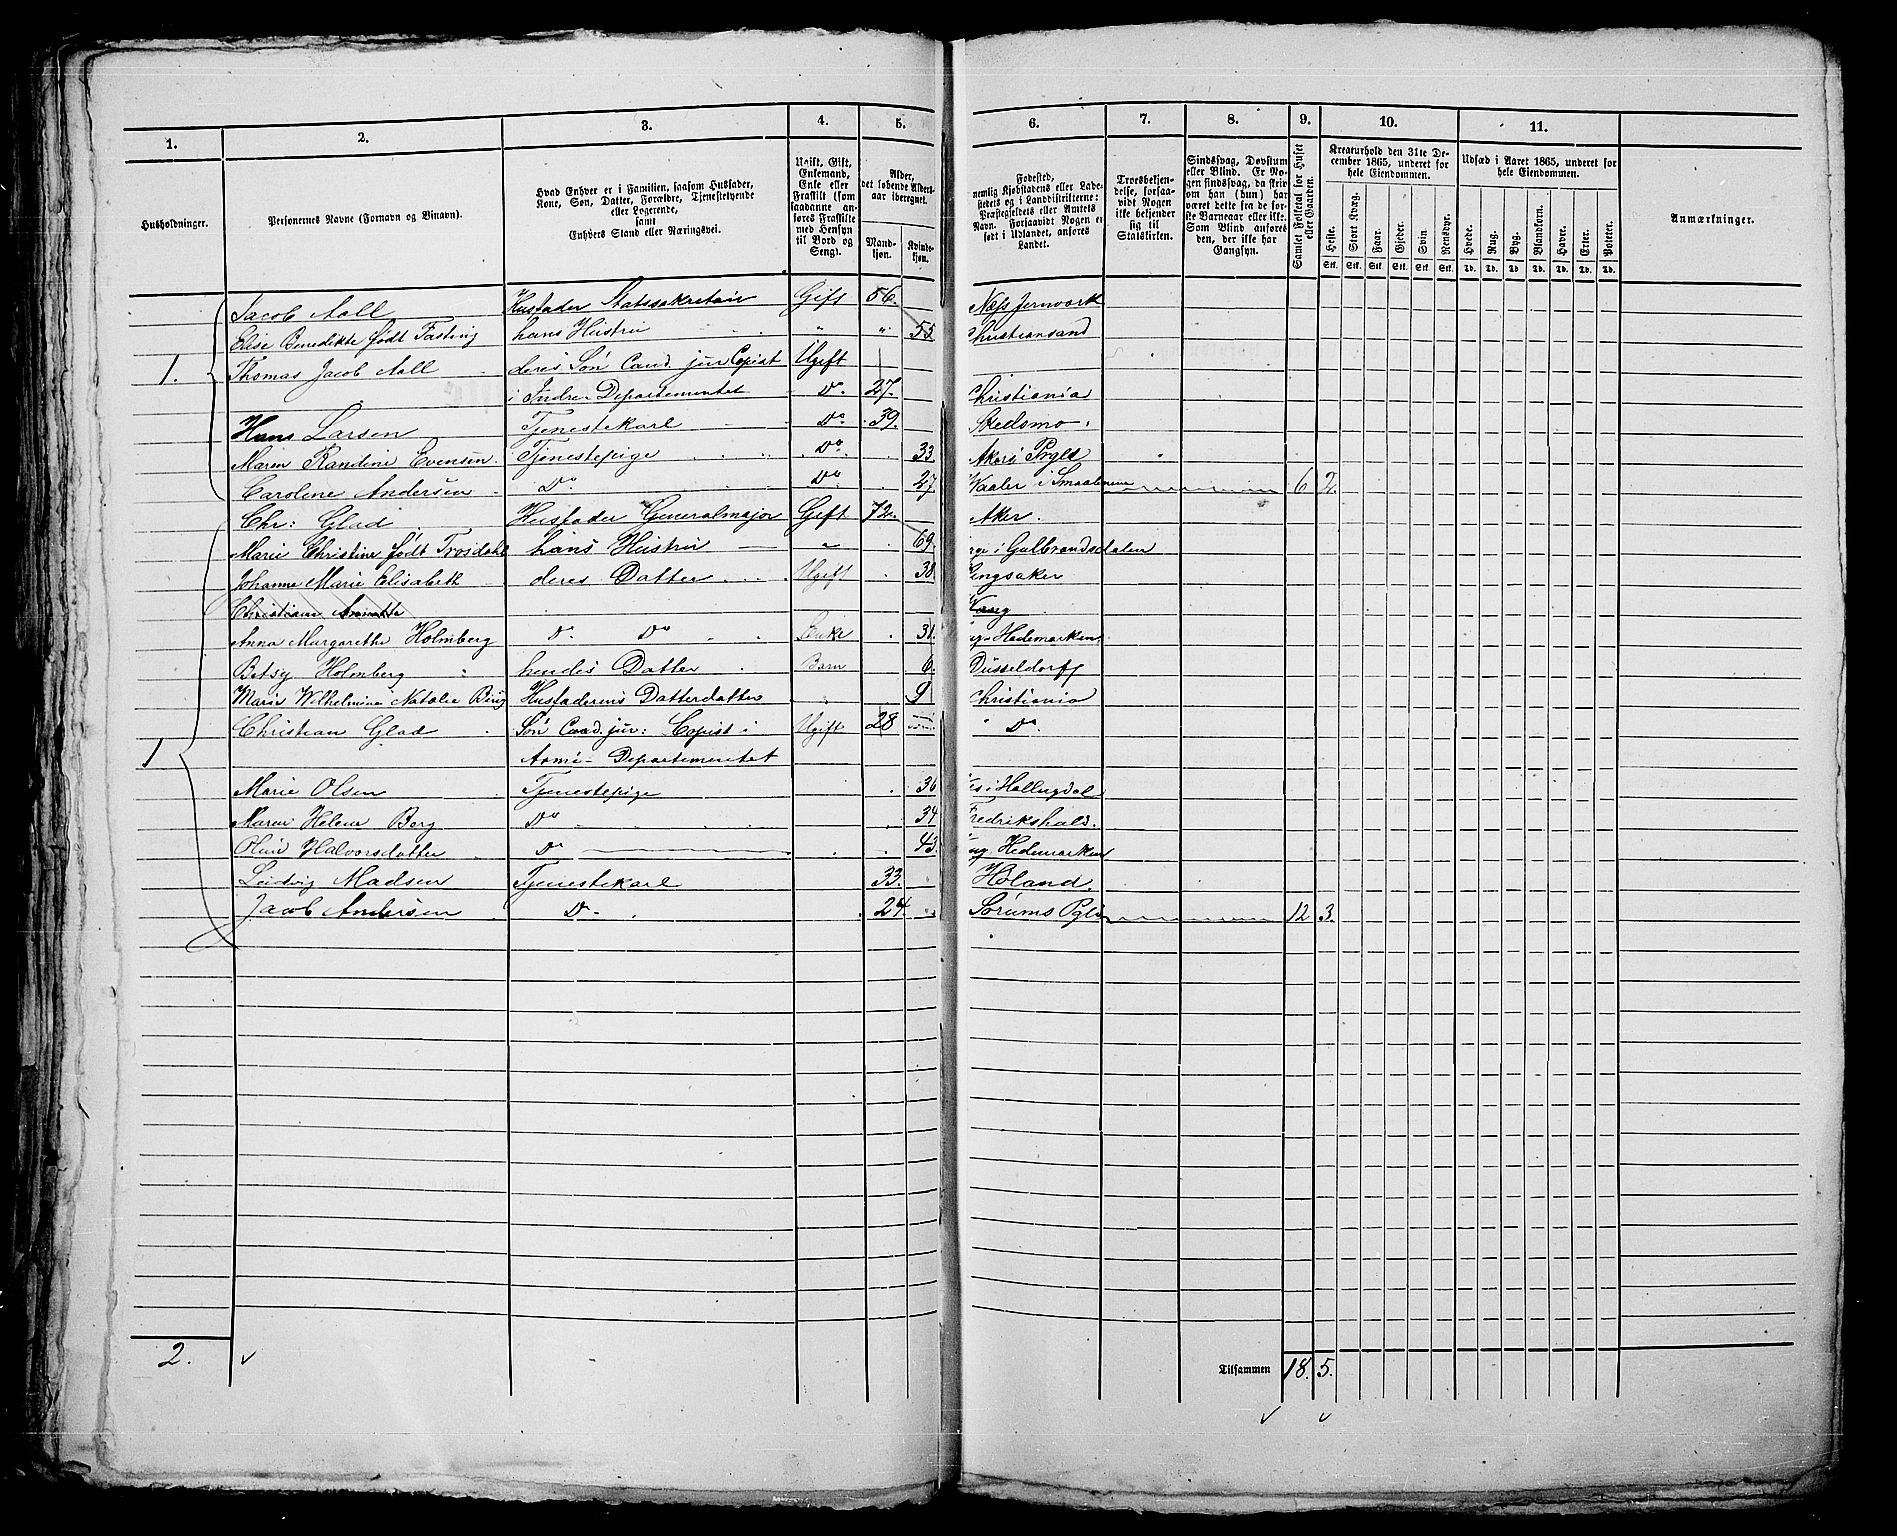 1.
2.
3.
4.
5.
6.
7.
8.
9.
10.
11.
Husholdninger.
Personernes Navne (Fornavn og Binavn).
Hvad Enhver er i Familien, saasom Husfader, Kone, Søn, Datter, Forældre, Tjenestetyende eller Logerende, samt Enhvers Stand eller Næringsvei.
Ugift, Gift, Enkemand, Enke eller Fraskilt (som saadanne anføres Fraskilte med Hensyn til Bord og Seng).
Alder, det løbende Alders-aar iberegnet.
Mand-kjøn.
Kvinde-kjøn.
Fødested, nemlig Kjøbstadens eller Ladestedets og i Landdistrikterne: Præstegjeldets eller Amtets Navn. Forsaavidt Nogen er født i Udlandet, anføres Landet.
Troesbekjendelse, forsaavidt Nogen ikke bekjender sig til Statskirken.
Sindssvag, Døvstum eller Blind. Er Nogen sindssvag, da skriv om han (hun) har været dette fra de første Barneaar eller ikke. Som Blind anføres den, der ikke har Gangsyn.
Samlet Folketal for Huset eller Gaarden.
Kreaturhold den 31te December 1865, underet for hele Eiendommen.
Heste. Stort Kvæg. Faar. Gjeder. Svin. Rensdyr.
Stk. Stk. Stk. Stk. Stk. Stk.
Udsæd i Aaret 1865, underet for hele Eiendommen.
Hvede. Rug. Byg. Blandkorn. Havre. Erter. Poteter.
Td. Td. Td. Td. Td. Td. Td.
Anmærkninger.
Jacob Aall Husfader Statssekretair Gift 56. Næss Jernværk
Elise Benedikte født Fasting hans Hustru " " 55 Christiansand
1. Thomas Jacob Aall deres Søn Cand. jur Copist Ugift
i Indre Departementet Do. 27. Christiania
Hans Larsen Tjenestekarl Do 39. Skedsmo
Maren Randine Evensen Tjenestepige Do 33 Akers Prgld
Carolene Andersen Do. Do 27 Vaaler i Smaalenene 6 2.
Chr: Glad Husfader Generalmajor Gift 72. Aker.
Marie Christine født Trosdahl hans Hustru " 69. i Gulbrandsdalen
Johanne Marie Elisabeth deres Datter Ugift 38 Ringsaker
Christiane Annette Vang
Anna Margarethe Holmberg Do. Do Enke 31. Hedemarken
Betsy Holmberg hendes Datter Barn 6. Düsseldorff
Marie Wilhelmine Natalie Bing Husfaderens Datterdatter " 9 Christiania
Christian Glad Søn Cand. jur: Copist i Ugift 28 " Do.
1 Arme-Departementet
Marie Olsen Tjenestepige 36 i Hallingdal
Maren Helene Borg Do 34 Fredrikshald.
Oline Halvorsdatter Do 43. Hedemarken
Ludvig Madsen Tjenestekarl 33. " Høland.
Jacob Andersen Do. 24. " Sørums Pgld 12 3.
2.
Tilsammen 18. 5.